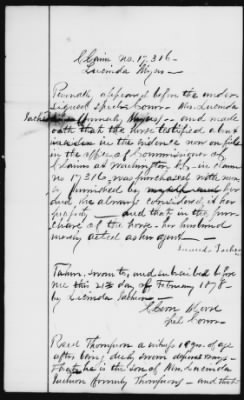 Claim no. 17,316 -
Lucinda Myers -
Personally appeared before the under
signed special Comr. Mrs. Lucinda
(formerly Myers) - and made
oath that the horse testified about
in the evidence now on file
in the office of Commissioner of
Claims at Washington, D.C. in claim
no 17316, was purchased with mon
ey furnished by myself and her
and she always considered it her
property - and that in the pur
chase of the horse, her husband
merely acted as her agent -
Sworn to, and subscribed before
me this 21st day of February 1878 -
by Lucinda
Spl Comr.
Reed Thompson a witness 18 yrs. of age
after being duly sworn deposes & says -
that he is the son of Mrs. Lucinda
(formerly Thompson) - and that